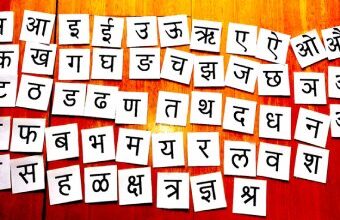 आ इ ई उ ऊ ऋ ए ऐ ओ औ
क ख ग घ ङ च छ ज झ ञ
ट ठ ड ढ ण त थ द ध न
फ ब भ म य र ल व श
स ह ळ क्ष त्र ज्ञ श्र